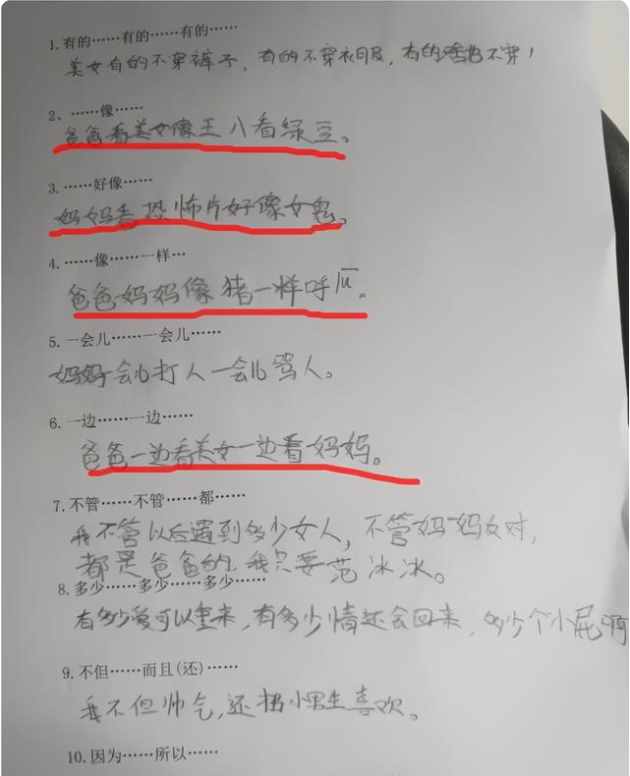 1.有的……有的……有的……
美女有的不穿裤子，有的不穿衣服，有的啥也不穿！
2、……像……
爸爸看美女像王八看绿豆。
3.……好像……
妈妈看恐怖片好像女鬼。
4.……像……一样…
爸爸妈妈像猪一样呼
5.一会儿……一会儿……
妈妈会儿打人一会儿骂人。
6.一边……一边……
爸爸一边看美女一边看妈妈。
7.不管……不管……都……
我不管以后遇到多少女人，不管妈妈反对，
都是爸爸的，我只要范冰冰。
8.多少……多少……多少……
有多少爱可以重来，有多少情还会回来，多少个小屁
9.不但……而且(还)……
我不但帅气，还招小男生喜欢。
10.因为……所以……